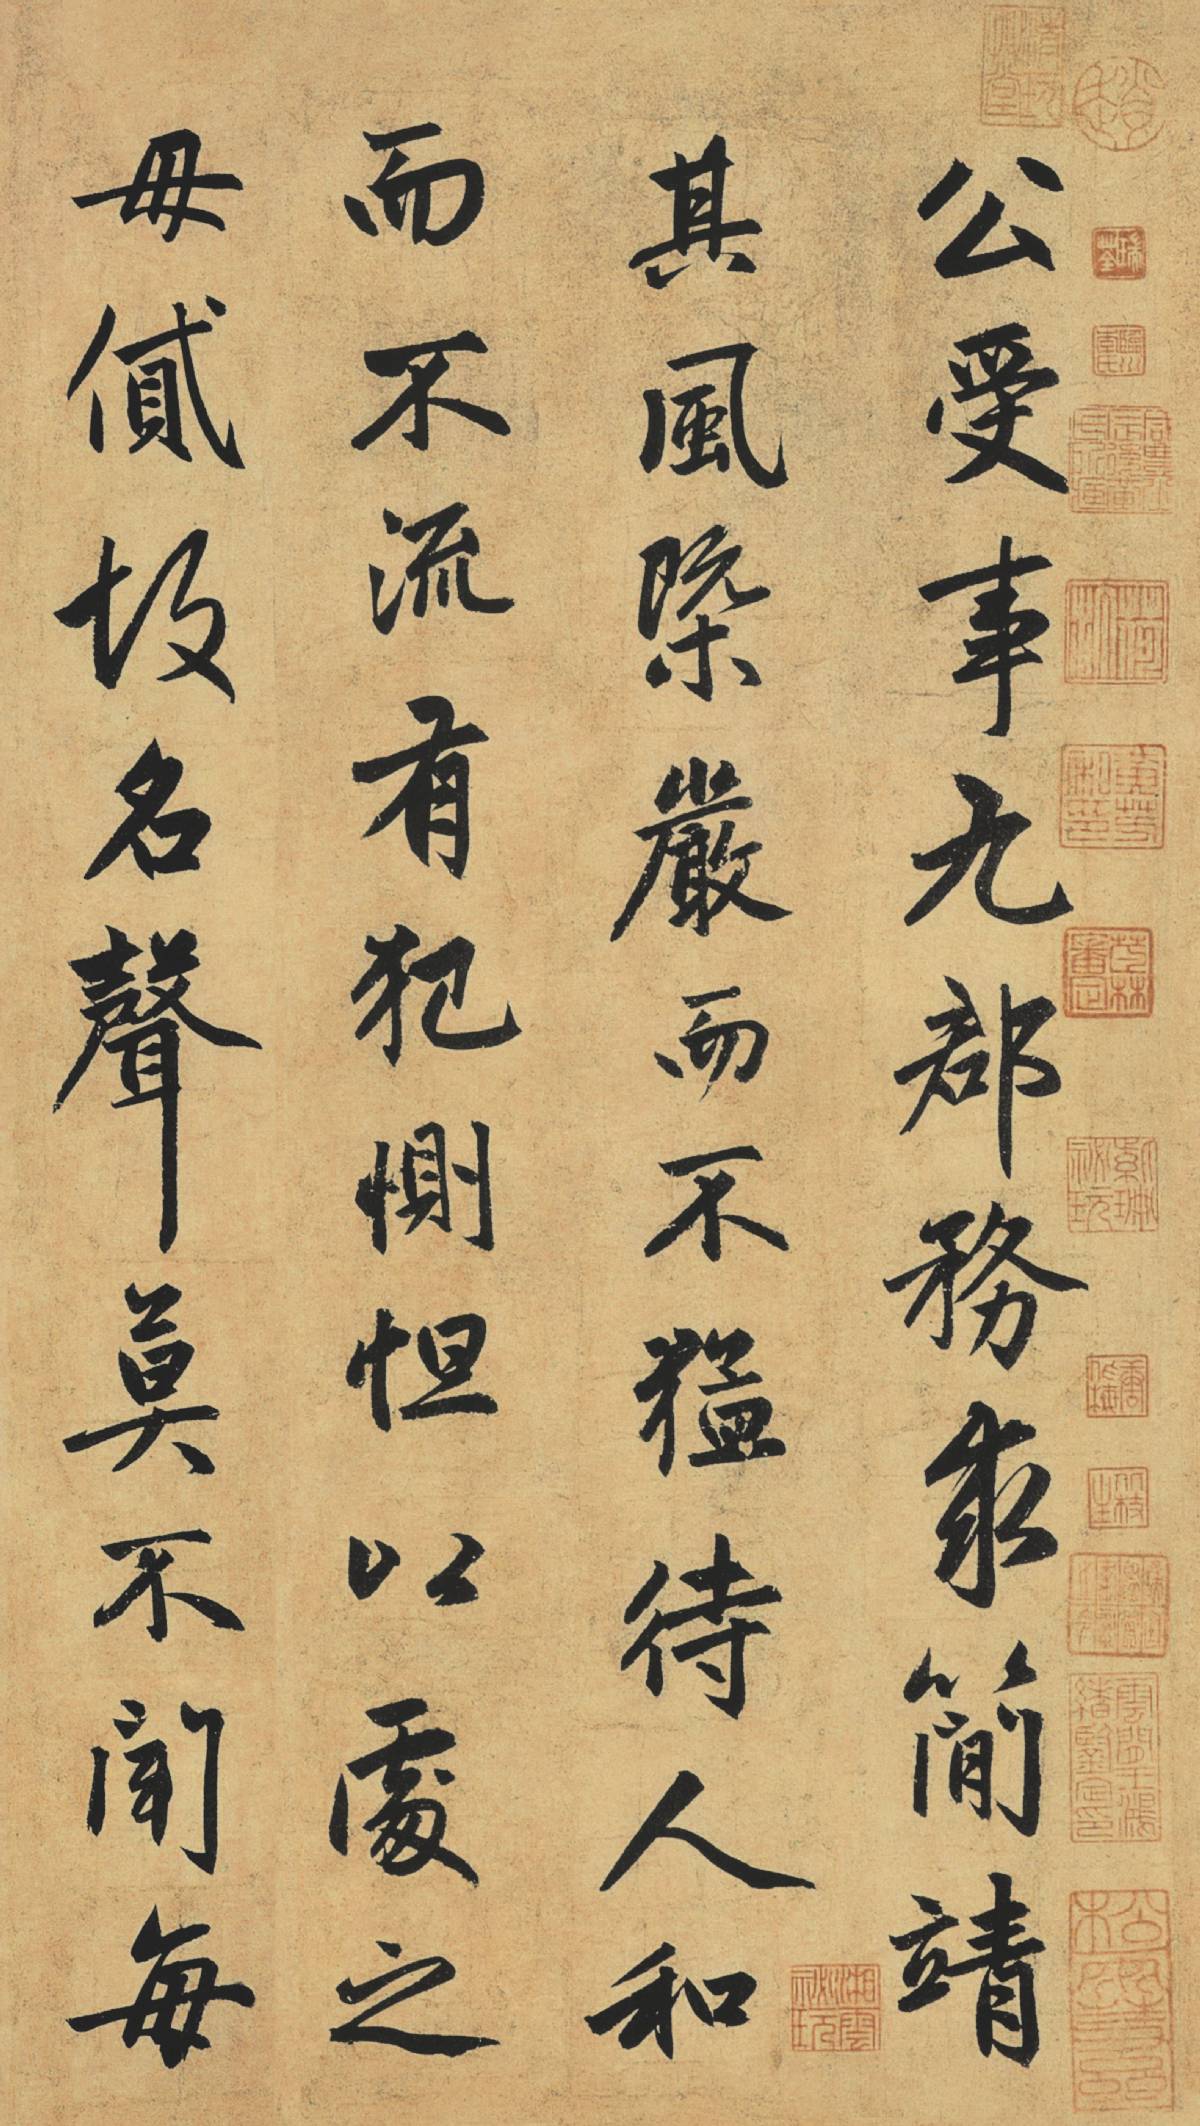 公受事九郡務求簡靖
其風槩嚴而不猛待人和
而不流有犯惻怛以處之
毋貸故名聲莫不聞每
湘雲秘玩